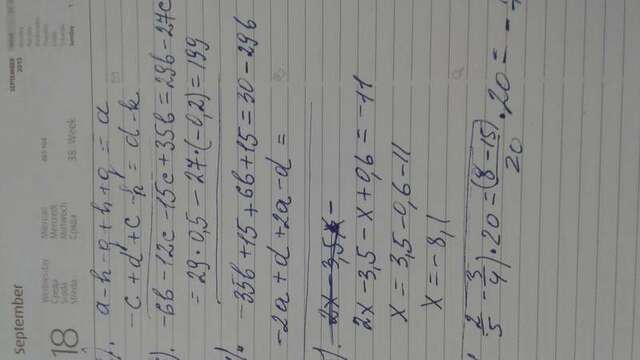 September
SEPTEMBER
2013
18
Wednesday Miércoles 261-104
Среда Mercredi
Środa Mittwoch
Streda Среда
38. Week
). a-h-g+h+g = a
-c+d+c-k = d-k
). -6b-12c-15c+35b=29b-27c
= 29·0,5-27·(-0,2)=199
). -35b+15+6b+15=30-29b
-2a+d+2a-d=
). 2x-3,5x-
2x-3,5-x+0,6=-11
x = 3,5-0,6-11
x=-8,1
2/5 - 3/4)·20 = (8-15)/20 ·20 = -